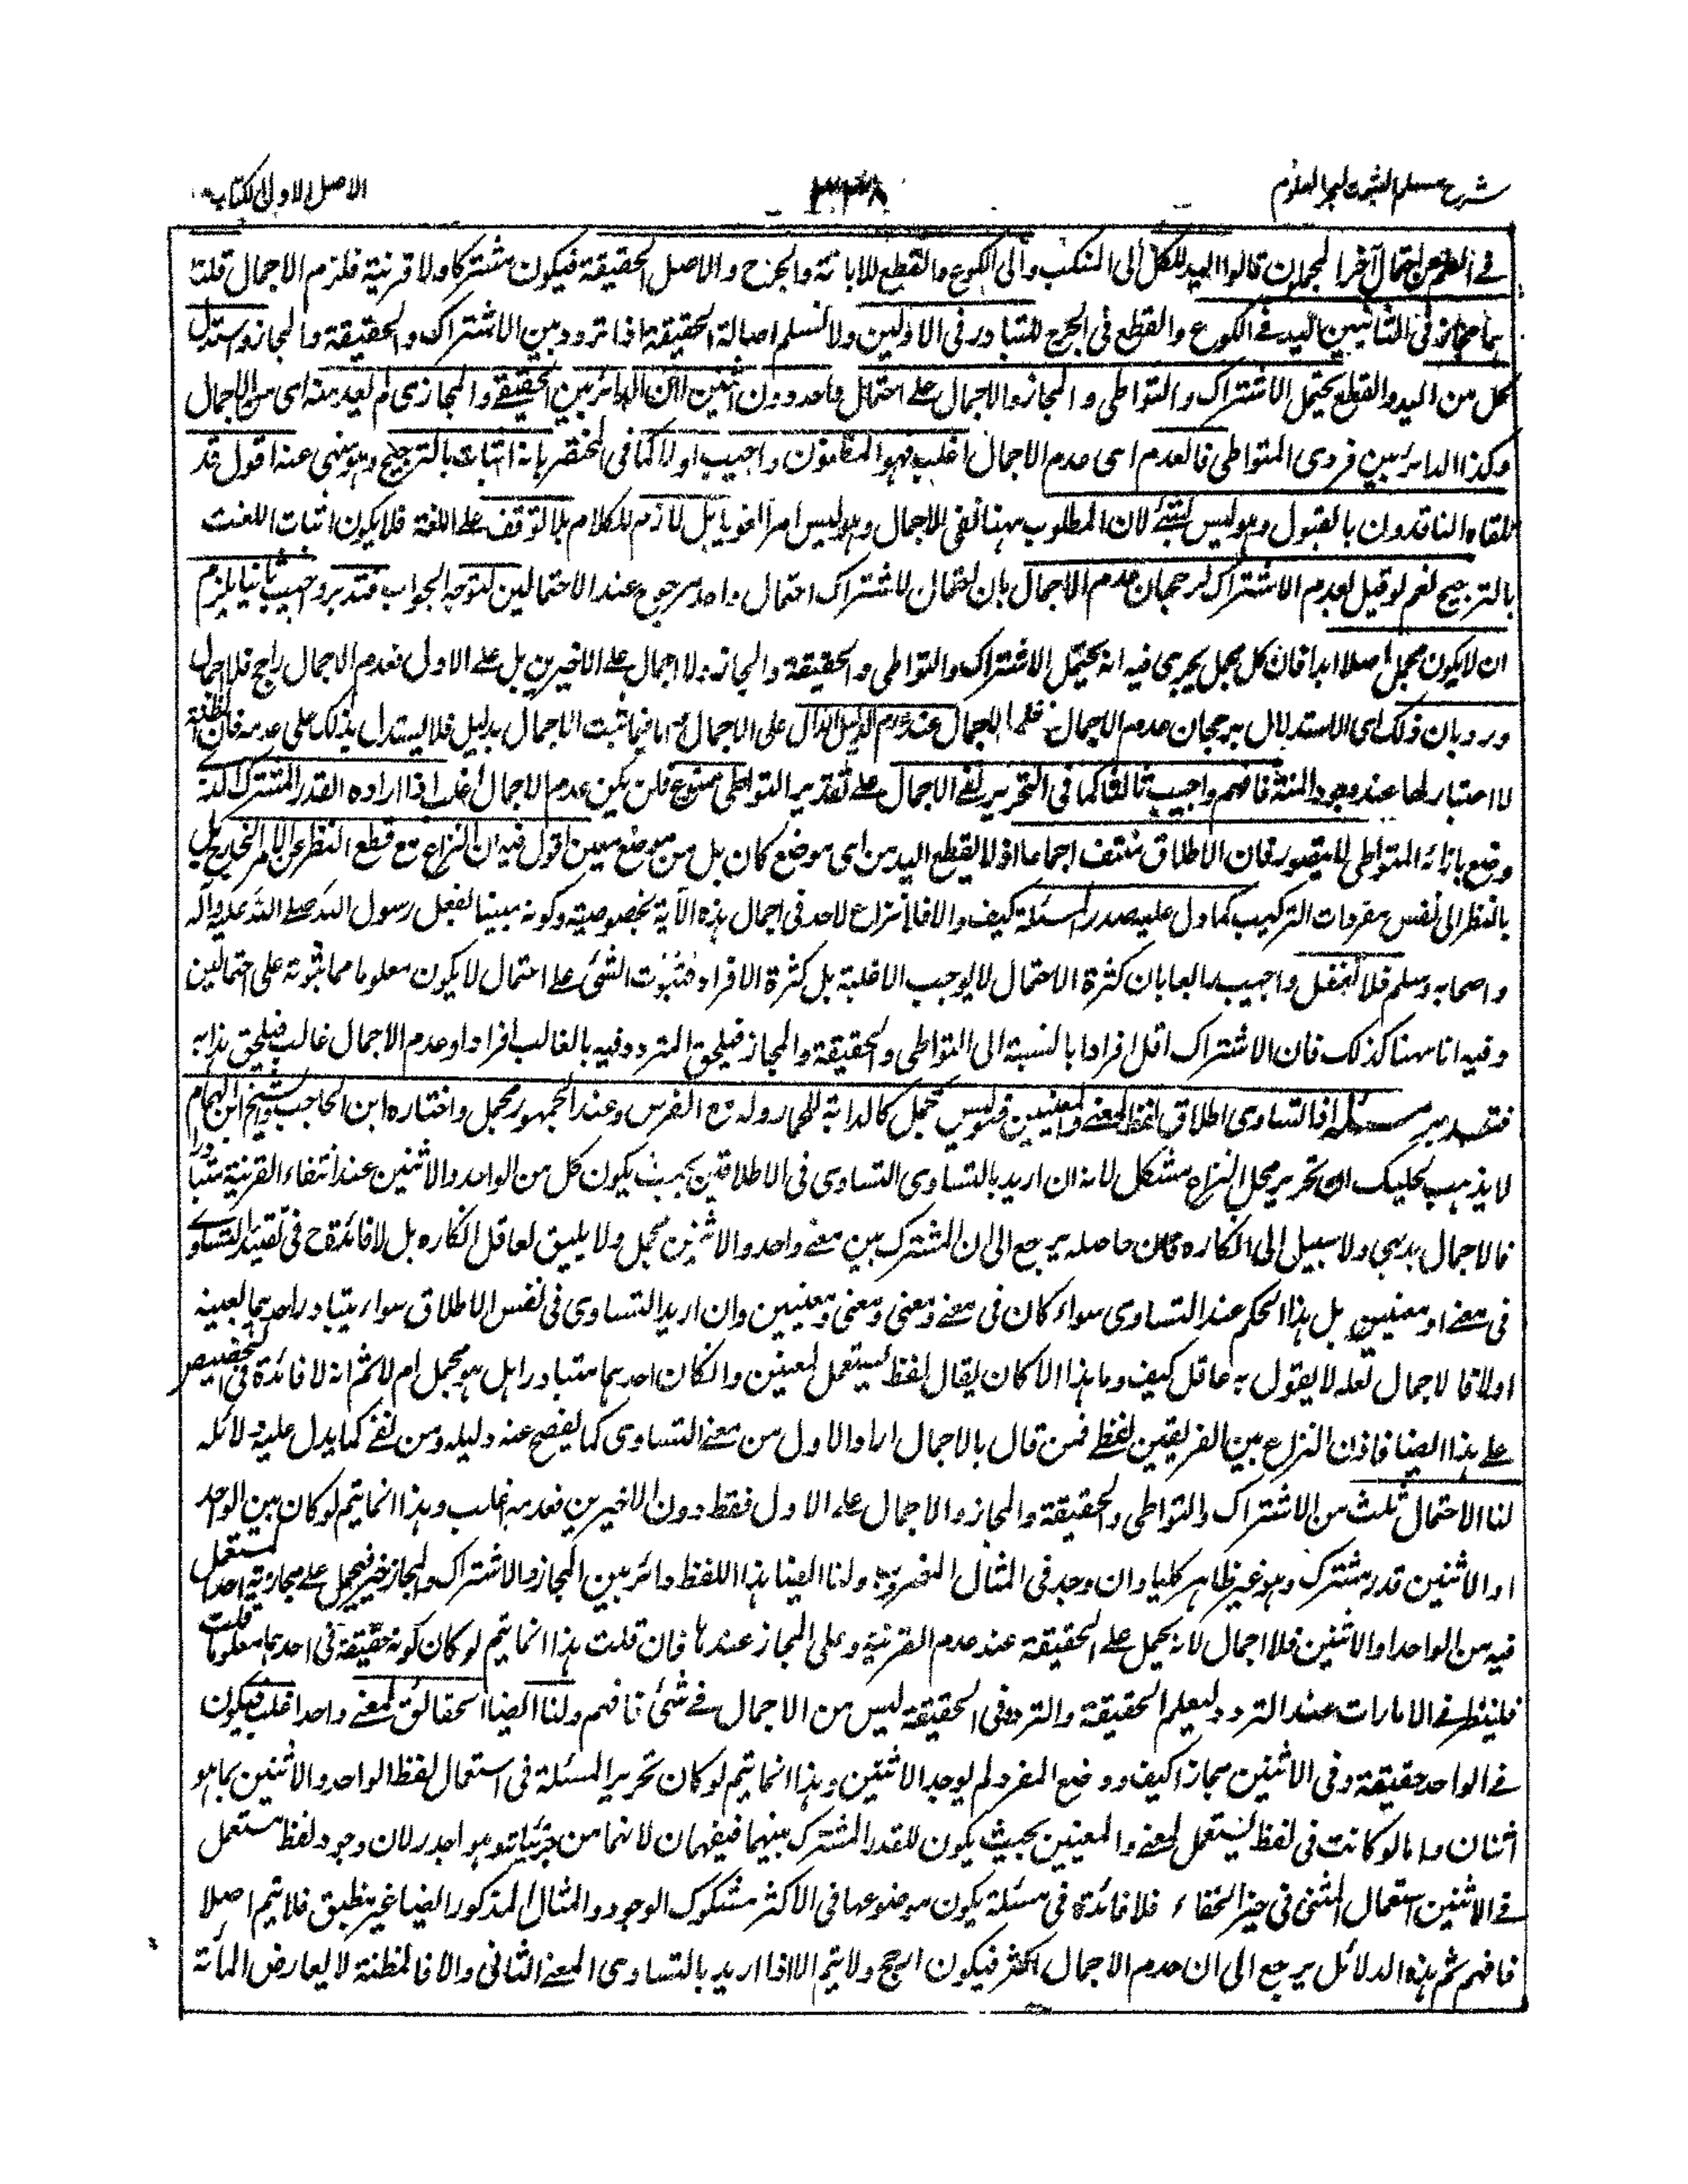 شرح مسلم الثبوت لبحر العلوم
الاصل الاول الكتاب
آخر المجملون قالوا اليد للكل الى المنكب والى الكوع والقطع للابانة والجرح والاصل الحقيقة فيكون مشتركا ولا قرينة فلزم الاجمال قلنا
مجاز فى الثانيين اليد فى الكوع والقطع فى الجرح للتبادر فى الاولين ولا نسلم اصالة الحقيقة اذا تردد بين الاشتراك والحقيقة والمجاز واستدل
كل من اليد والقطع يحتمل الاشتراك والتواطى والمجاز والاجمال على احتمال واحد دون اثنين لان الدائر بين الحقيقى والمجازى لم يعد منه اى من الاجمال
وكذا الدائر بين فردى المتواطى فالعدم اى عدم الاجمال اغلب فهو المظنون واجيب اولا كما فى المختصر بانه اثبات بالترجيح وهو منهى عنه اقول قد
تلقاه الناقدون بالقبول وهو ليس بشئ لان المطلوب ههنا نفى الاجمال وهو ليس امرا لغويا بل لازم للكلام بلا توقف على اللغة فلا يكون اثبات اللغت
بالترجيح نعم لو قيل بعدم الاشتراك لرجحان عدم الاجمال بان احتمال الاشتراك احتمال واحد مرجوح عند الاحتمالين لتوجه الجواب فتدبر واجيب ثانيا يلزم
ان لا يكون مجمل اصلا ابدا فان كل مجمل يجرى فيه انه يحتمل الاشتراك والتواطى والحقيقة والمجاز ولا اجمال على الاخيرين بل على الاول فعدم الاجمال راجح فلا اجمال
ورد بان ذلك اى الاستدلال برجحان عدم الاجمال عند عدم الدليل الدال على الاجمال اما فيما ثبت الاجمال بدليل فلا يستدل بذلك على عدمه فان المظنة
لا اعتبار لها عند وجود المئنة فافهم واجيب ثالثا كما فى التحرير نفى الاجمال على تقدير التواطى ممنوع فلن يكون عدم الاجمال اغلب اذ ارادة القدر المشترك الذى
وضع بازائه المتواطى لا يتصور فان الاطلاق منتف اجماعا اذ لا يقطع اليد من اى موضع كان بل من موضع معين اقول فيه ان النزاع مع قطع النظر عن الامر الخارج بل
بالنظر الى نفس مفردات التركيب كما دل عليه صدر المسئلة كيف والا فلا نزاع لاحد فى اجمال هذه الآية بخصوصية وكونه مبينا لفعل رسول الله صلى الله عليه وآله
واصحابه وسلم فلا تغفل واجيب رابعا بان كثرة الاحتمال لا يوجب الاغلبة بل كثرة الافراد فثبوت الشئ على احتمال لا يكون معلوما مما ثبوته على احتمالين
وفيه انا ههنا كذلك فان الاشتراك اقل افرادا بالنسبة الى التواطى والحقيقة والمجاز فيلحق المتردد فيه بالغالب افرادا وعدم الاجمال غالب فيلحق هذا به
فتدبر مسئلة اذا تساوى اطلاق لفظ لمعنى ولمعنيين فليس بمجمل كالدابة للحمار وله مع الفرس وعند الجمهور مجمل واختاره ابن الحاجب والشيخ ابن الهمام
لا يذهب عليك ان تحرير محل النزاع مشكل لانه ان اريد بالتساوى التساوى فى الاطلاقين بحيث يكون كل من الواحد والاثنين عند انتفاء القرينة متبادرا
فالاجمال بديهى ولا سبيل الى انكاره فان حاصله يرجع الى ان المشترك بين معنى واحد والاثنين مجمل ولا يليق لعاقل انكاره بل لا فائدة ح فى تقييد التساوى
فى معنى او معنيين بل هذا الحكم عند التساوى سواء كان فى معنى ومعنى ومعنى ومعنيين وان اريد التساوى فى نفس الاطلاق سواء يتبادر احدهما بعينه
اولا فالاجمال لعله لا يقول به عاقل كيف وما هذا الا كان يقال لفظ يستعمل لمعنين وان كان احدهما متبادرا هل هو مجمل ام لا ثم انه لا فائدة فى التخصيص
على هذا ايضا فاذن النزاع بين الفريقين لفظى فمن قال بالاجمال اراد الاول من معنى التساوى كما يفصح عنه دليله ومن نفى كما يدل عليه دلائله
لنا الاحتمال ثلث من الاشتراك والتواطى والحقيقة والمجاز والاجمال على الاول فقط دون الاخيرين فعدمه اغلب وهذا انما يتم لو كان بين الواحد
او الاثنين قدر مشترك وهو غير ظاهر كليا وان وجد فى المثال المضروب ولنا ايضا هذا اللفظ دائر بين المجاز والاشتراك والمجاز خير فيحمل على مجازية احد المستعمل
فيه من الواحد او الاثنين فلا اجمال لانه يحمل على الحقيقة عند عدم القرينة وعلى المجاز عندها فان قلت هذا انما يتم لو كان كونه حقيقة فى احدهما معلوما قلت
فلينظر فى الامارات عند التردد ليعلم الحقيقة والتردد فى الحقيقة ليس من الاجمال فى شئ فافهم ولنا ايضا الحقائق لمعنى واحد اغلب فيكون
فى الواحد حقيقة وفى الاثنين مجازا كيف ووضع المفرد لم يوجد الاثنين وهذا انما يتم لو كان تحرير المسئلة فى استعمال لفظ الواحد والاثنين بما هو
اثنان واما لو كانت فى لفظ يستعمل لمعنى والمعنيين بحيث يكون للقدر المشترك بينهما فيفهمان لانهما من جزئياته وهو اجدر لان وجود لفظ مستعمل
فى الاثنين استعمال المثنى فى حيز الخفاء فلا فائدة فى مسئلة يكون موضوعها فى الاكثر مشكوك الوجود والمثال المذكور ايضا غير منطبق فلا يتم اصلا
فافهم ثم هذه الدلائل يرجع الى ان عدم الاجمال اكثر فيكون ارجح ولا يتم الا اذا اريد بالتساوى المعنى الثانى والا فالمظنة لا يعارض المائة